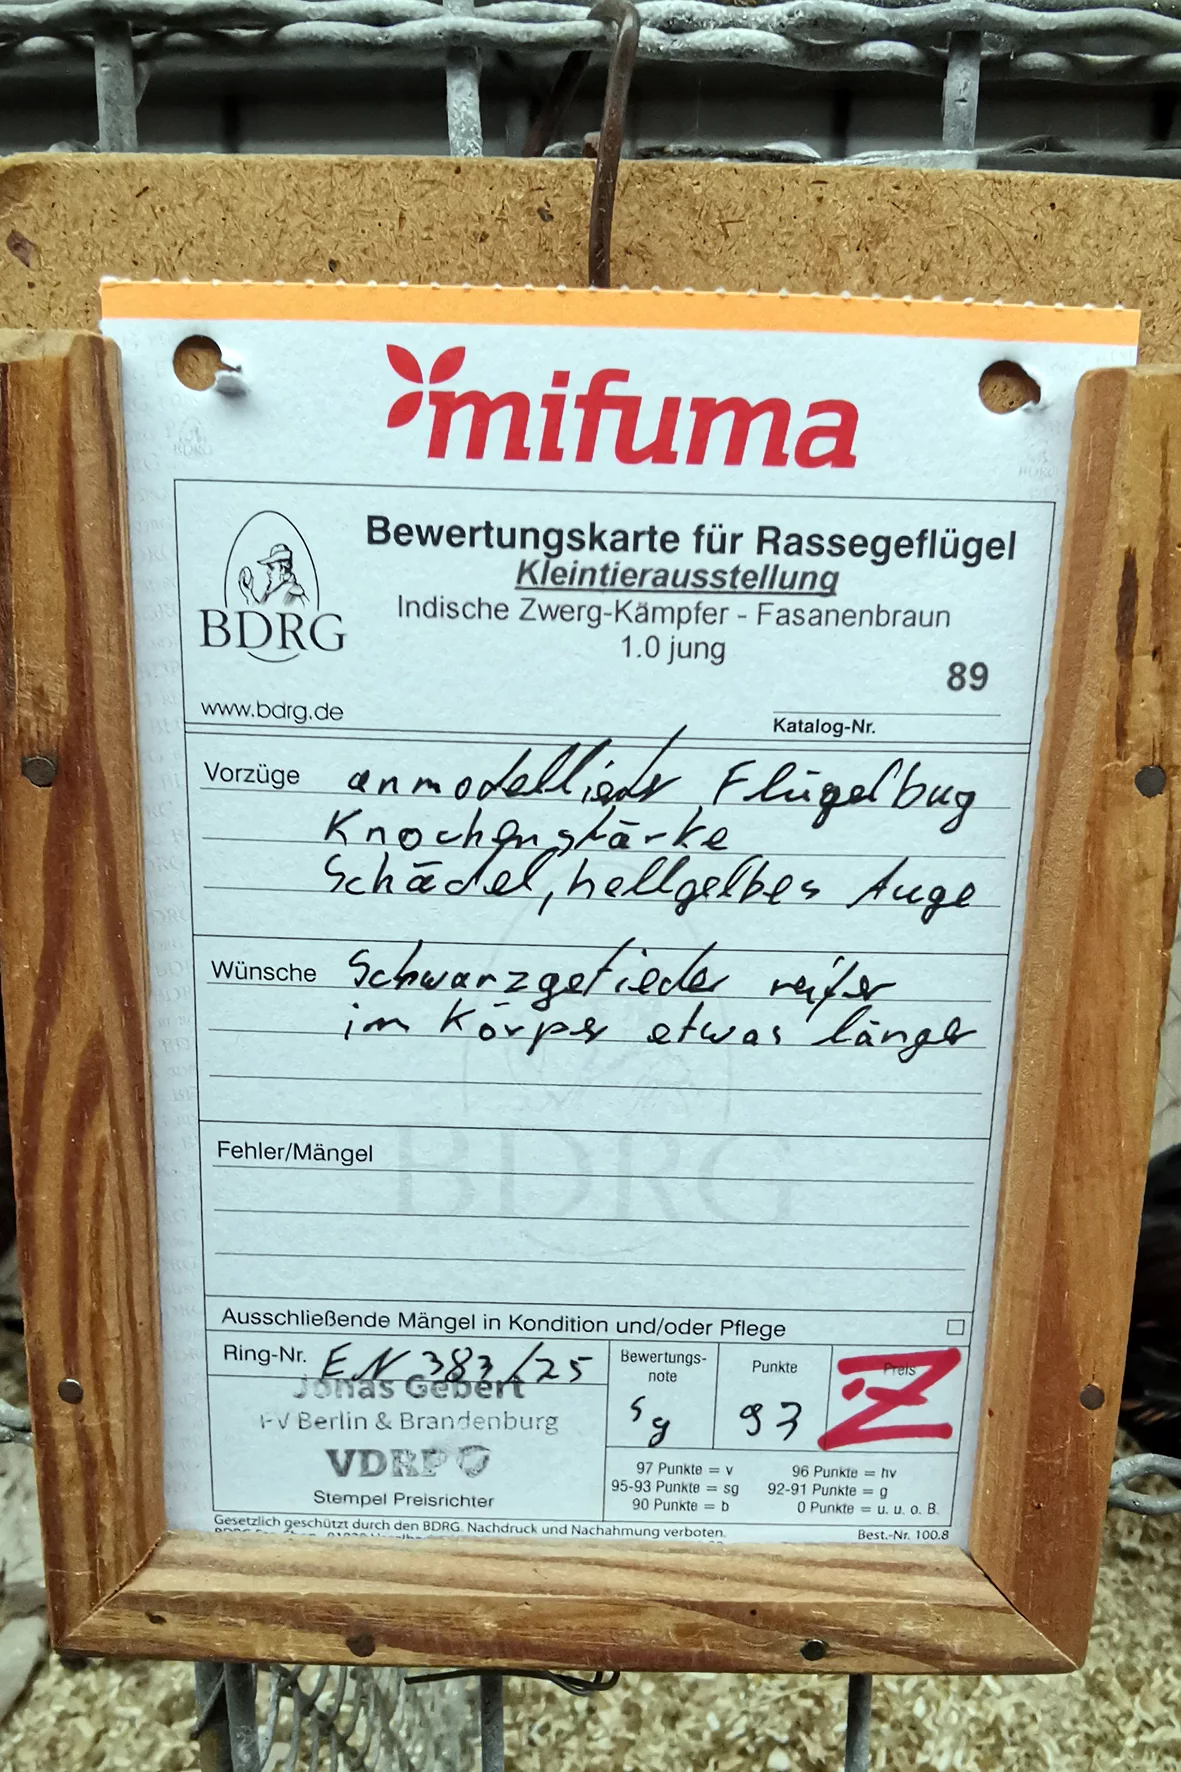 mifuma
Bewertungskarte für Rassegeflügel
Kleintierausstellung
Indische Zwerg-Kämpfer - Fasanenbraun
1.0 jung
BDRG
89
www.bdrg.de
Katalog-Nr.
Vorzüge anmodellierter Flügelbug
Knochenstärke
Schädel, hellgelbes Auge
Wünsche Schwarzgefieder reifer
im Körper etwas länger
Fehler/Mängel
BDRG
Ausschließende Mängel in Kondition und/oder Pflege
Ring-Nr. EN 383/25
Jonas Gebert
PV Berlin & Brandenburg
VDRP
Stempel Preisrichter
Bewertungs-
note
sg
Punkte
93
Preis
Z
97 Punkte = v 96 Punkte = hv
95-93 Punkte = sg 92-91 Punkte = g
90 Punkte = b 0 Punkte = u. u. o. B.
Gesetzlich geschützt durch den BDRG. Nachdruck und Nachahmung verboten.
Best.-Nr. 100.8